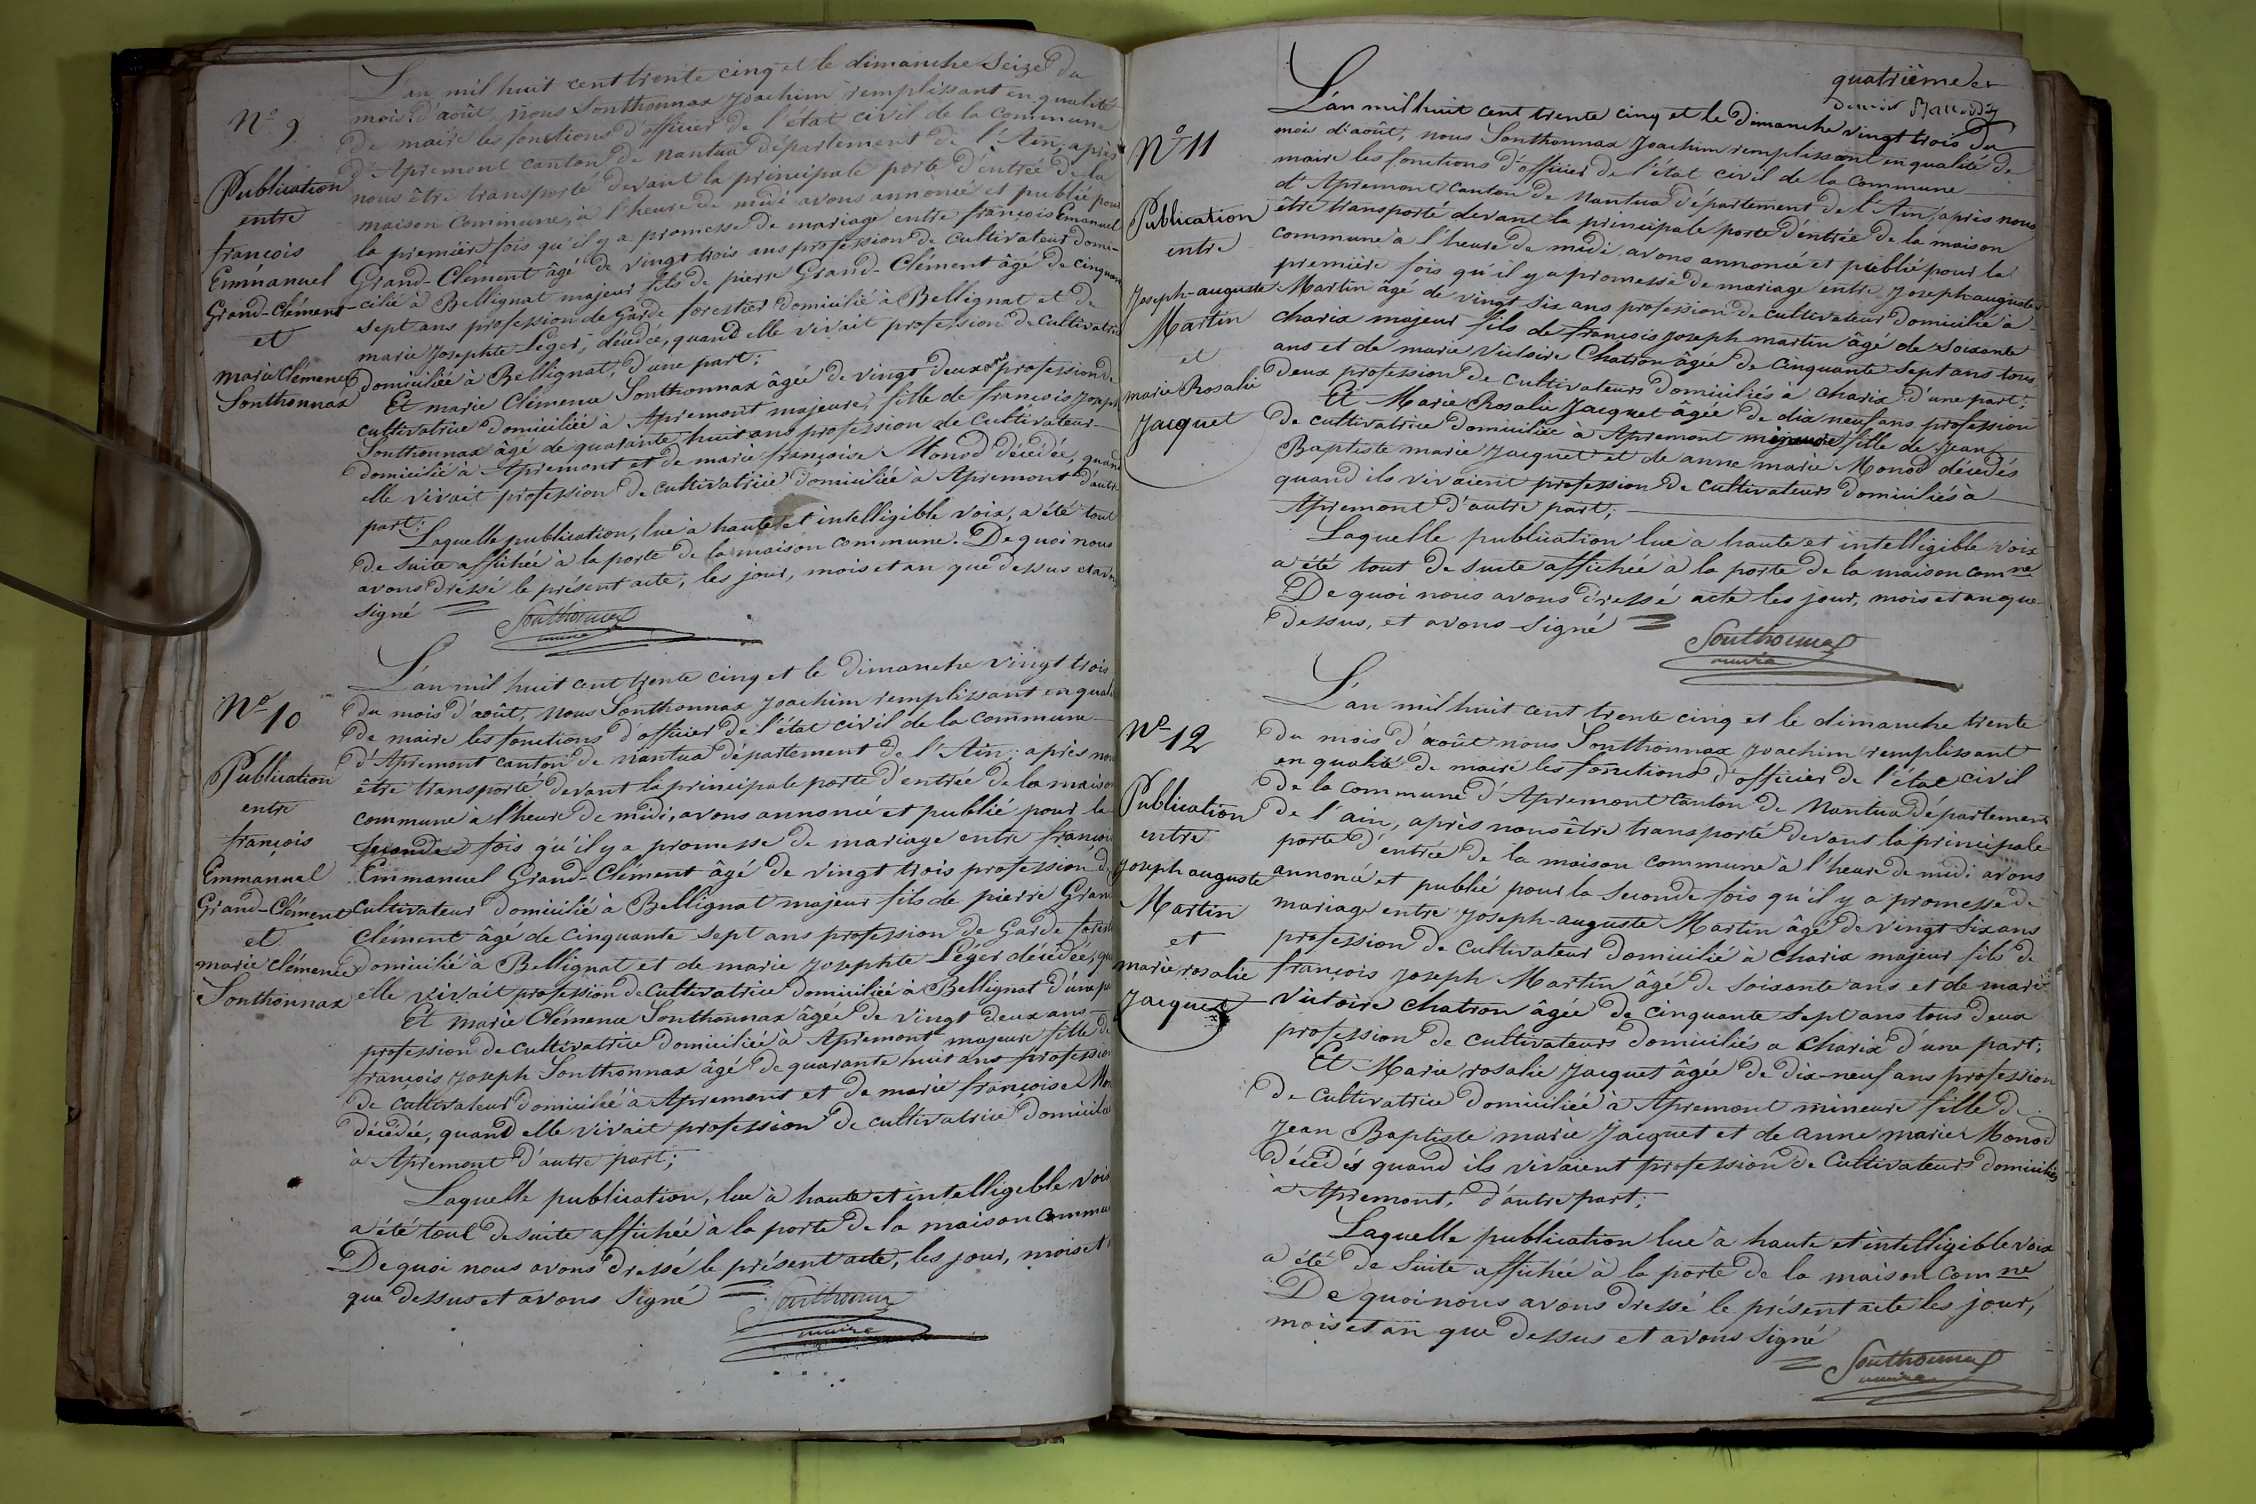 N.o 9
Publication
entre
françois
Emmanuel
Grand-Clément
et
marie Clémence
Sonthonnax
L'an mil huit cent trente cinq et le dimanche seize du
mois d'août, nous Sonthonnax Joachim remplissant en qualité
de maire les fonctions d'officier de l'état civil de la commune
d'Apremont canton de nantua département de l'Ain, après
nous être transporté devant la principale porte d'entrée de la
maison commune, à l'heure de midi avons annoncé et publié pour
la première fois qu'il y a promesse de mariage entre françois Emanuel
Grand-Clément âgé de vingt trois ans profession de cultivateur domi-
-cilié à Bellignat majeur fils de pierre Grand-Clément âgé de cinquante
sept ans profession de Garde forestier domicilié à Bellignat et de
marie Josephte Léger, décédée, quand elle vivait profession de cultivatrice
domiciliée à Bellignat, d'une part;
Et marie Clémence Sonthonnax âgée de vingt deux ans profession de
cultivatrice domiciliée à Apremont majeure, fille de françois Joseph
Sonthonnax âgé de quarante huit ans profession de cultivateur
domicilié à Apremont et de marie françoise Monod décédée, quand
elle vivait profession de cultivatrice domiciliée à Apremont d'autre
part;
Laquelle publication, lue à haute et intelligible voix, a été tout
de suite affichée à la porte de la maison commune. De quoi nous
avons dressé le présent acte, les jour, mois et an que dessus et avons
signé
Sonthonnax
maire
N.o 10
Publication
entre
françois
Emmanuel
Grand-Clément
et
marie Clémence
Sonthonnax
L'an mil huit cent trente cinq et le dimanche vingt trois
du mois d'août, nous Sonthonnax Joachim remplissant en quali
de maire les fonctions d'officier de l'état civil de la commune
d'Apremont canton de nantua département de l'Ain; après nou
être transporté devant la principale porte d'entrée de la maison
commune à l'heure de midi, avons annoncé et publié pour la
seconde fois qu'il y a promesse de mariage entre françois
Emmanuel Grand-Clément âgé de vingt trois profession de
cultivateur domicilié à Bellignat majeur fils de pierre Grand
Clément âgé de cinquante sept ans profession de Garde forestier
domicilié à Bellignat et de marie Josephte Léger décédée, qu
elle vivait profession de cultivatrice domiciliée à Bellignat d'une pa
Et marie Clémence Sonthonnax âgée de vingt deux ans
profession de cultivatrice domiciliée à Apremont majeure fille de
françois Joseph Sonthonnax âgé de quarante huit ans profession
de cultivateur domicilié à Apremont et de marie françoise Mon
décédée, quand elle vivait profession de cultivatrice domiciliée
à Apremont d'autre part;
Laquelle publication, lue à haute et intelligible voix
a été tout de suite affichée à la porte de la maison commun
De quoi nous avons dressé le présent acte, les jour, mois et
que dessus et avons signé
Sonthonnax
maire
quatrième et
N.o 11
Publication
entre
Joseph-auguste
Martin
et
marie Rosalie
Jacquet
L'an mil huit cent trente cinq et le dimanche vingt trois du
mois d'août, nous Sonthonnax Joachim remplissant en qualité de
maire les fonctions d'officier de l'état civil de la commune
d'Apremont canton de nantua département de l'Ain, après nous
être transporté devant la principale porte d'entrée de la maison
commune à l'heure de midi avons annoncé et publié pour la
première fois qu'il y a promesse de mariage entre Joseph auguste
Martin âgé de vingt six ans profession de cultivateur domicilié à
charix majeur fils de françois Joseph martin âgé de soixante
ans et de marie victoire Chatron âgée de cinquante sept ans tous
deux profession de cultivateurs domiciliés à charix d'une part;
Et Marie Rosalie Jacquet âgée de dix neuf ans profession
de cultivatrice domiciliée à Apremont mineure fille de Jean
Baptiste marie Jacquet et de anne marie Monod décédés
quand ils vivaient profession de cultivateurs domiciliés à
Apremont d'autre part;
Laquelle publication lue à haute et intelligible voix
a été tout de suite affichée à la porte de la maison comne
De quoi nous avons dressé acte les jour, mois et an que
dessus, et avons signé
Sonthonnax
maire
N.o 12
Publication
entre
Joseph auguste
Martin
et
marie rosalie
Jacquet
L'an mil huit cent trente cinq et le dimanche trente
du mois d'août nous Sonthonnax Joachim remplissant
en qualité de maire les fonctions d'officier de l'état civil
de la commune d'Apremont canton de Nantua département
de l'ain, après nous être transporté devant la principale
porte d'entrée de la maison commune à l'heure de midi avons
annoncé et publié pour la seconde fois qu'il y a promesse de
mariage entre Joseph-auguste Martin âgé de vingt six ans
profession de cultivateur domicilié à charix majeur fils de
françois Joseph Martin âgé de soixante ans et de marie
victoire chatron âgée de cinquante sept ans tous deux
profession de cultivateurs domiciliés a charix d'une part;
Et Marie rosalie Jacquet âgée de dix-neuf ans profession
de cultivatrice domiciliée à Apremont mineure fille de
Jean Baptiste marie Jacquet et de anne marie Monod
décédés quand ils vivaient profession de cultivateurs domiciliés
à Apremont, d'autre part;
Laquelle publication lue à haute et intelligible voix
a été de suite affichée à la porte de la maison comne
De quoi nous avons dressé le présent acte les jour,
mois et an que dessus et avons signé
Sonthonnax
maire